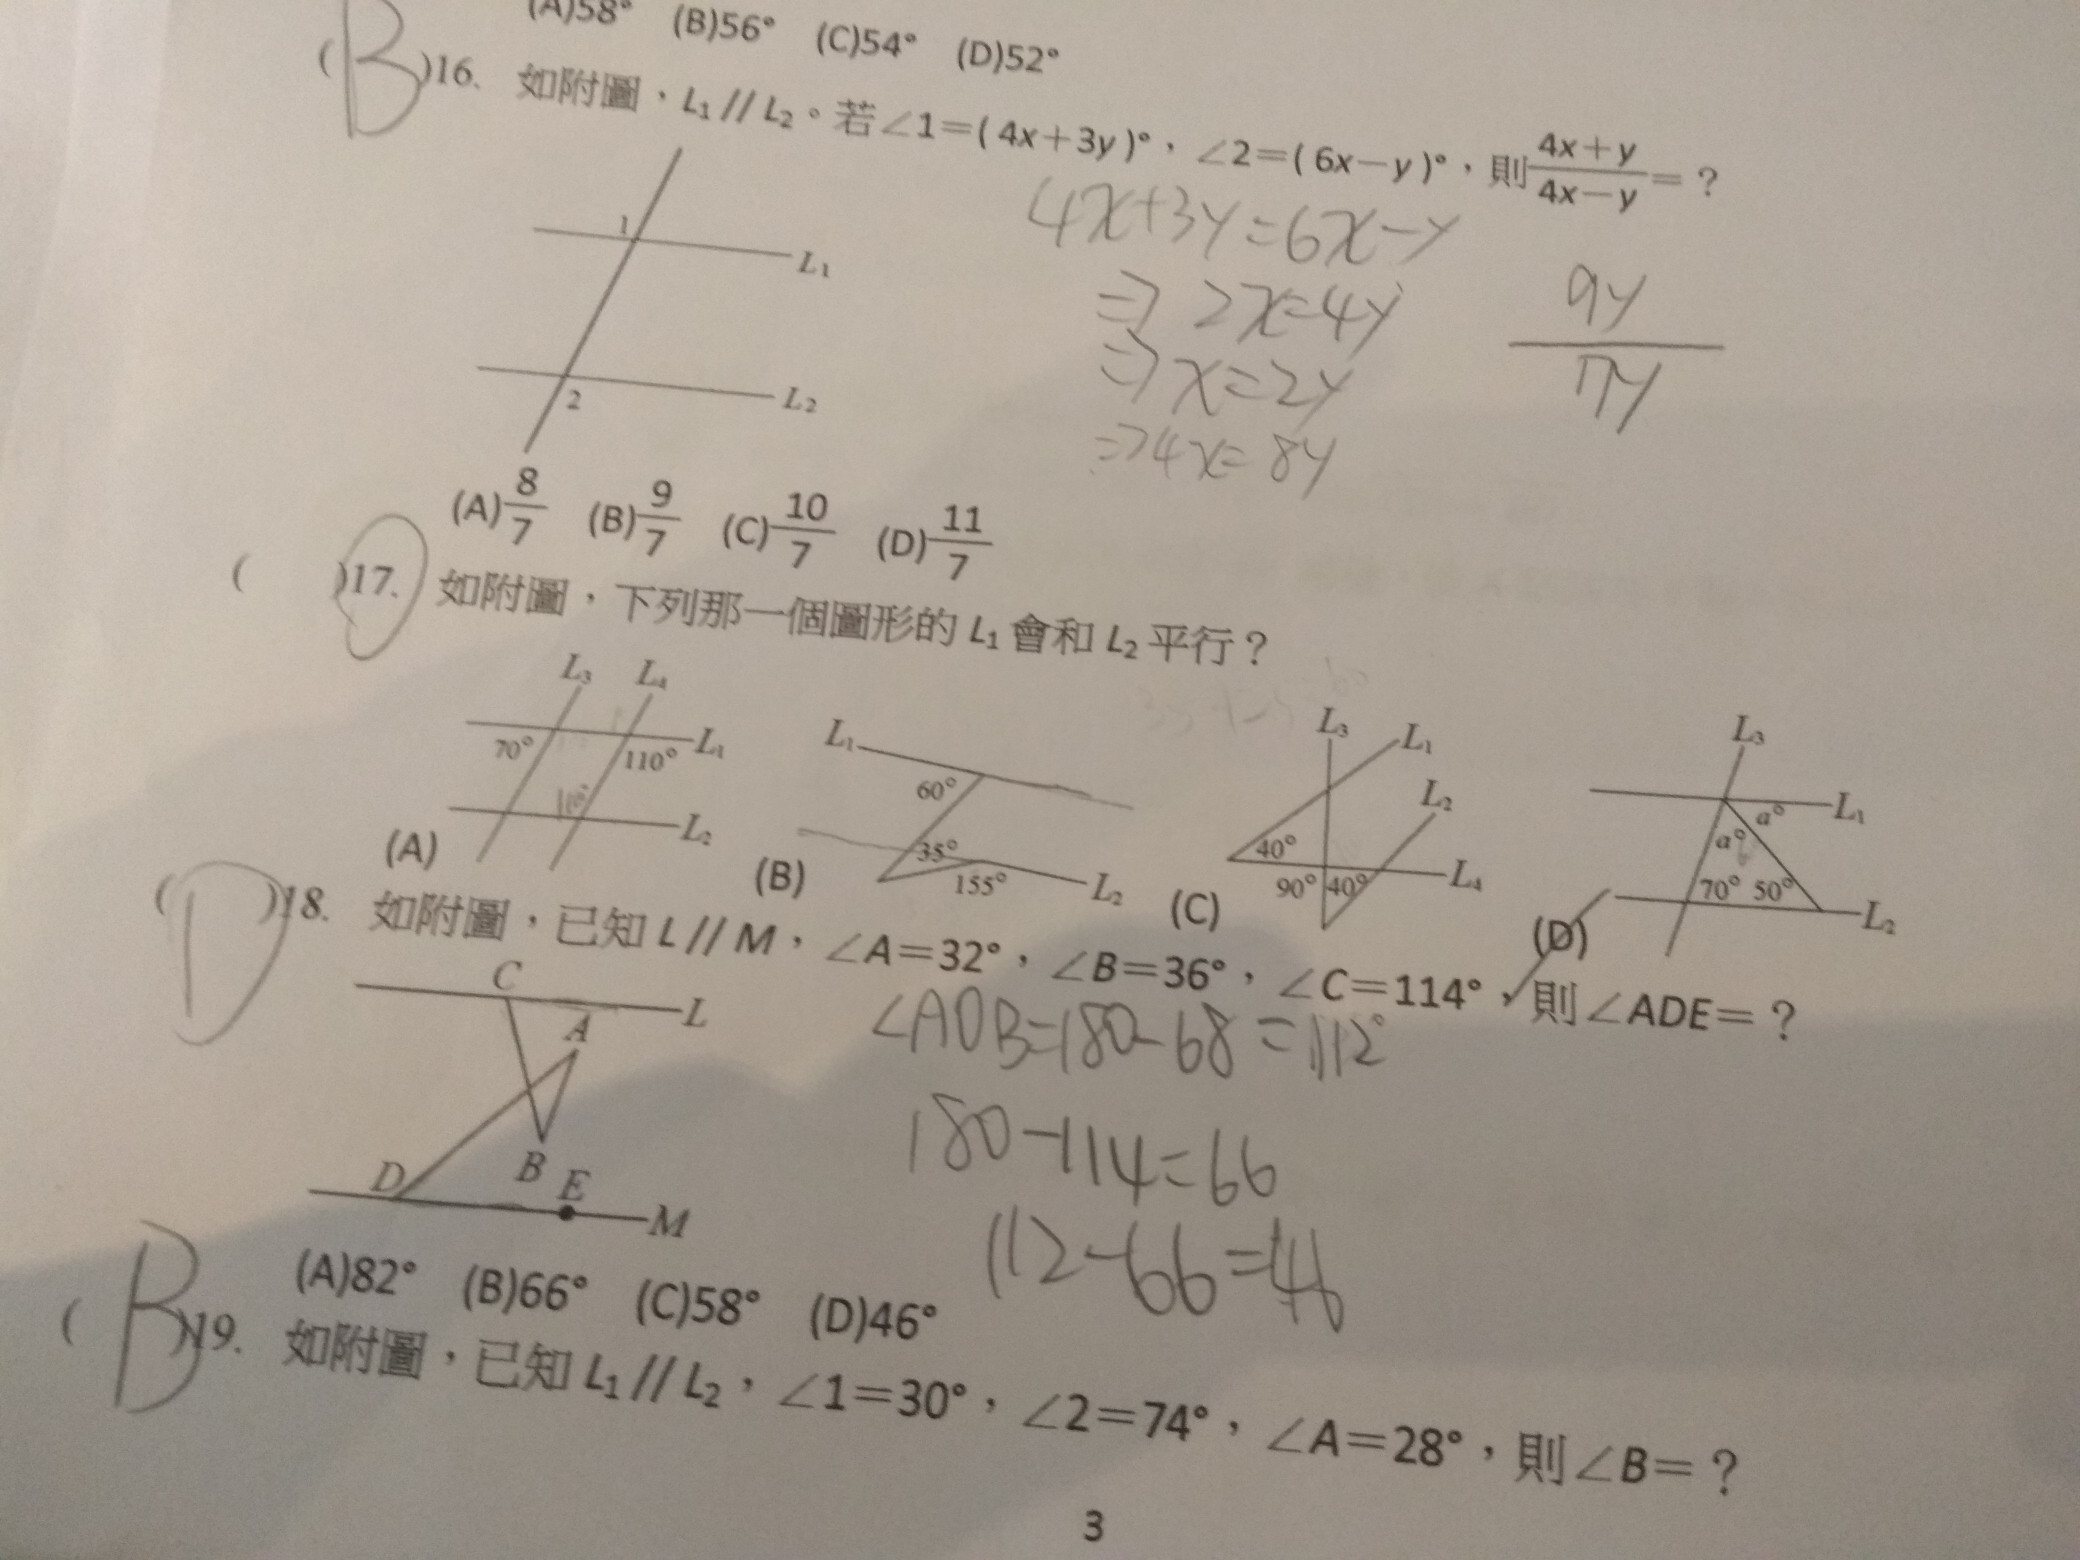 (A)58° (B)56° (C)54° (D)52°
( B )16. 如附圖，L₁ // L₂。若∠1＝( 4x＋3y )°，∠2＝( 6x－y )°，則 4x＋y / 4x－y ＝？
4x+3y=6x-y
⇒ 2x=4y
⇒ x=2y
⇒ 4x=8y
9y / 7y
1
L₁
2
L₂
(A) 8/7 (B) 9/7 (C) 10/7 (D) 11/7
( )17. 如附圖，下列那一個圖形的 L₁ 會和 L₂ 平行？
(A) L₃ L₄ 70° 110° L₁ L₂
(B) L₁ 60° 35° 155° L₂
(C) L₃ L₁ L₂ 40° 90° 40° L₄
(D) L₃ a° L₁ a° 70° 50° L₂
( D )18. 如附圖，已知 L // M，∠A＝32°，∠B＝36°，∠C＝114°，則∠ADE＝？
∠AOB=180-68=112°
180-114=66
112-66=46
C
L
A
B
D
E
M
(A)82° (B)66° (C)58° (D)46°
( B )19. 如附圖，已知 L₁ // L₂，∠1＝30°，∠2＝74°，∠A＝28°，則∠B＝？
3